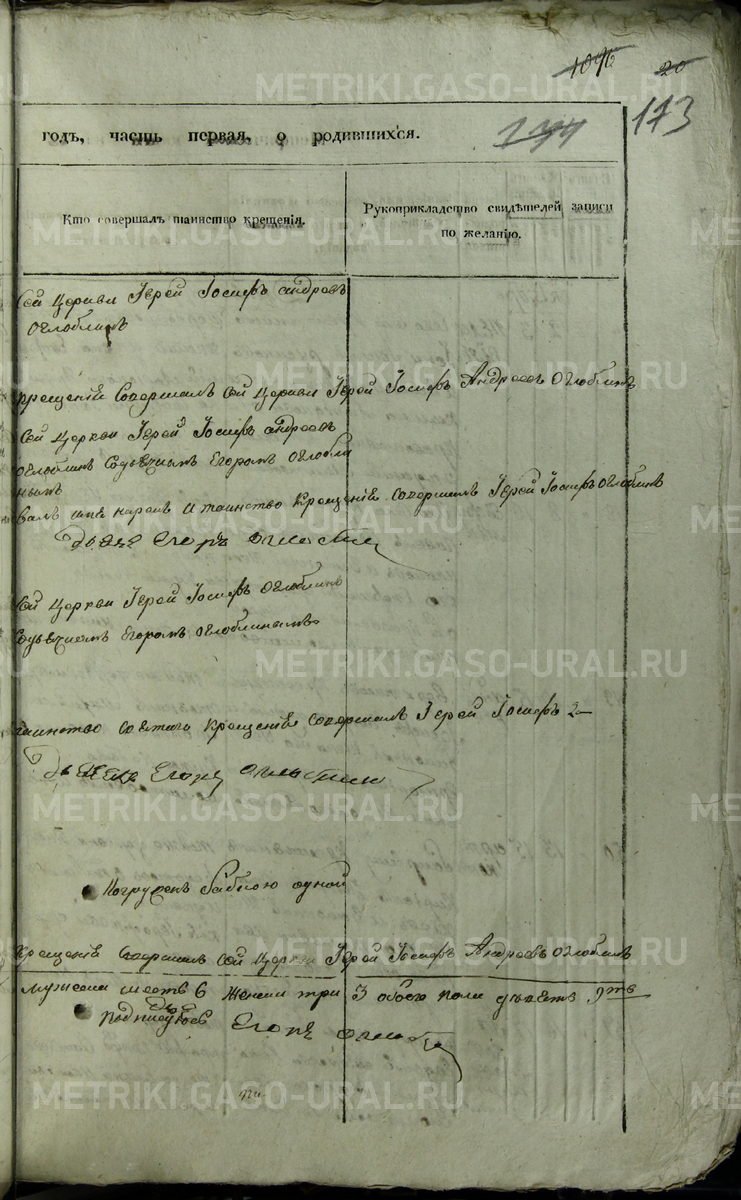 1096 20
173
годъ, часть первая, о родившихся. 177
Кто совершалъ таинство крещенія.
Рукоприкладство свидѣтелей записи
по желанію.
Сей Церкви Іерей Іосифъ андреевъ
оглоблинъ
крещеніе Совершалъ Сей Церкви Іерей Іосифъ Андреевъ Оглоблинъ
Сей Церкви Іерей Іосифъ андреевъ
оглоблинъ Содьячкомъ Егоромъ оглобли
нымъ
нарекъ и таинство крещеніе совершалъ Іерей Іосифъ оглоблинъ
Егоръ
Сей Церкви Іерей Іосифъ оглоблинъ
Содьячкомъ Егоромъ оглоблинымъ
таинство Святаго крещенія совершалъ Іерей Іосифъ
Егоръ
Погружен бабкою одной
крещеніе Совершалъ Сей Церкви Іерей Іосифъ Андреевъ оглоблинъ
мужеска шесть 6 женска три 3 обоего пола девять 9ть
Егоръ
METRIKI.GASO-URAL.RU